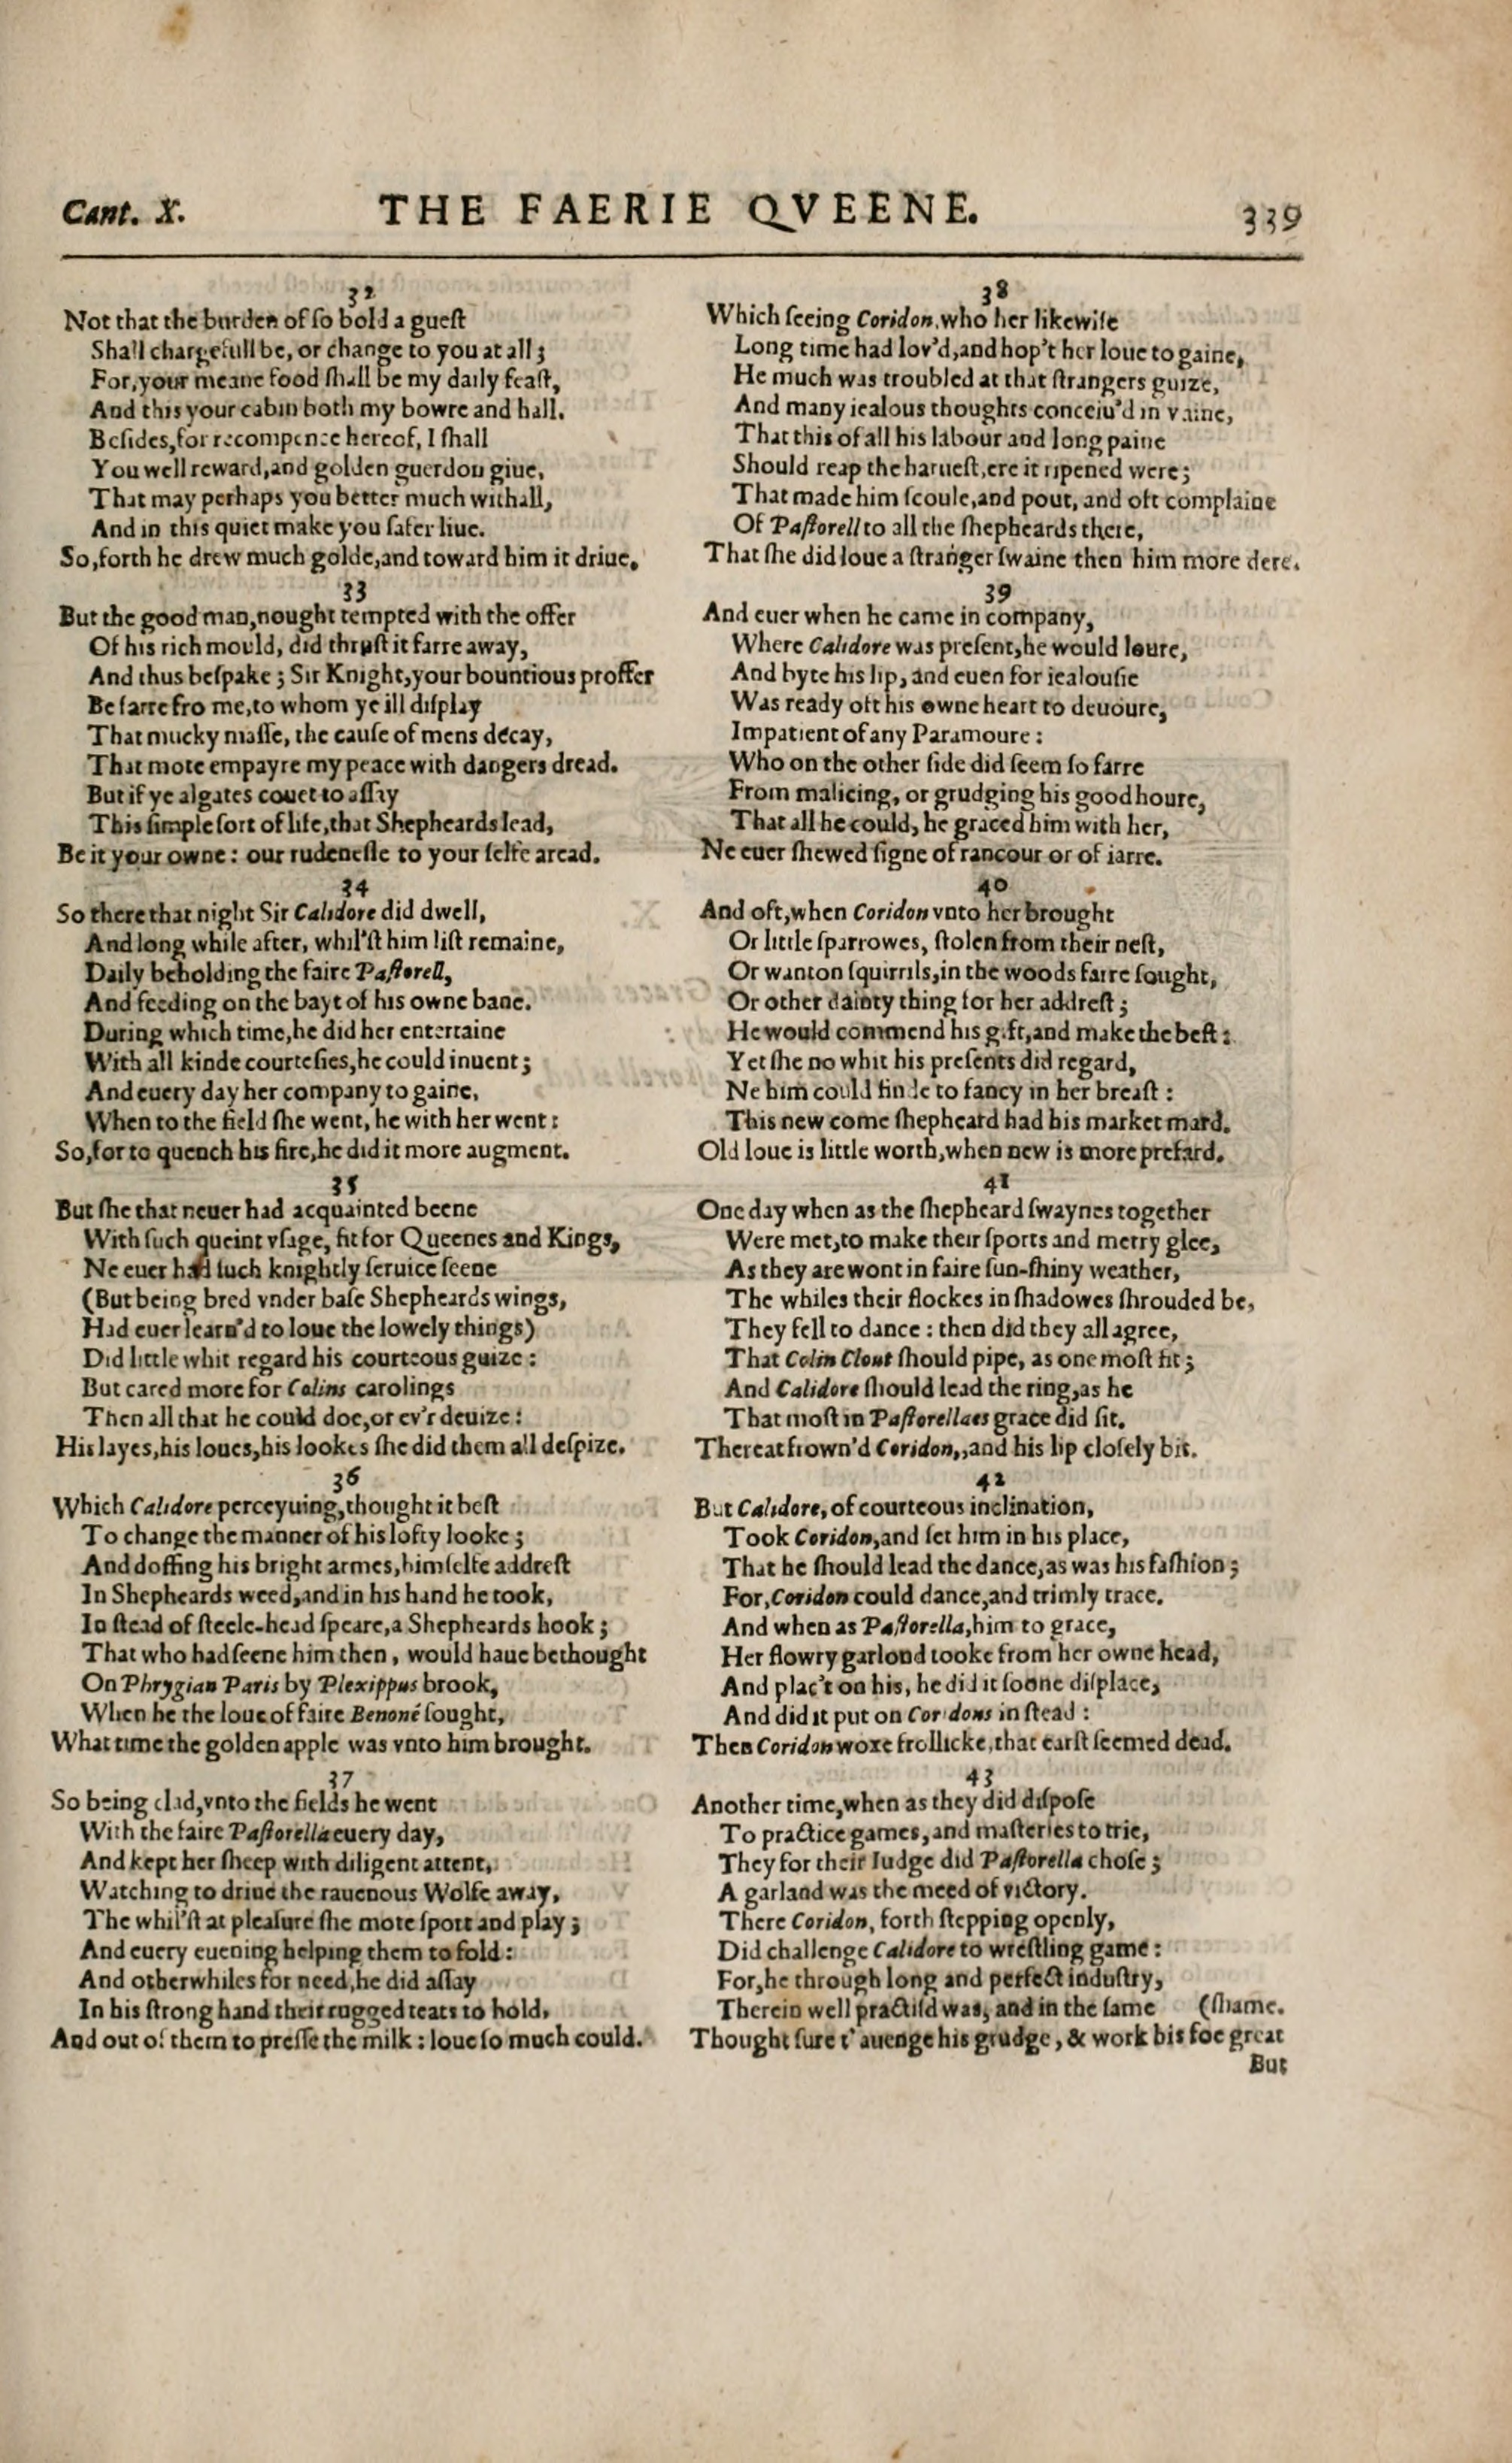 Cant. X. THE FAERIE QVEENE. 339
32
Not that the burden of ſo bold a gueſt
Shall chargefull be, or change to you at all;
For, your meane food ſhall be my daily feaſt,
And this your cabin both my bowre and hall.
Beſides, for recompence hereof, I ſhall
You well reward, and golden guerdon giue,
That may perhaps you better much withall,
And in this quiet make you ſafer liue.
So, forth he drew much golde, and toward him it driue.
33
But the good man, nought tempted with the offer
Of his rich mould, did thruſt it farre away,
And thus beſpake; Sir Knight, your bountious proffer
Be farre fro me, to whom ye ill diſplay
That mucky maſſe, the cauſe of mens decay,
That mote empayre my peace with dangers dread.
But if ye algates couet to aſſay
This ſimple ſort of life, that Shepheards lead,
Be it your owne: our rudeneſſe to your ſelfe aread.
34
So there that night Sir Calidore did dwell,
And long while after, whil'ſt him liſt remaine,
Daily beholding the faire Paſtorell,
And feeding on the bayt of his owne bane.
During which time, he did her entertaine
With all kinde courteſies, he could inuent;
And euery day her company to gaine,
When to the field ſhe went, he with her went:
So, for to quench his fire, he did it more augment.
35
But ſhe that neuer had acquainted beene
With ſuch queint vſage, fit for Queenes and Kings,
Ne euer had ſuch knightly ſeruice ſeene
(But being bred vnder baſe Shepheards wings,
Had euer learn'd to loue the lowely things)
Did little whit regard his courteous guize:
But cared more for Colins carolings
Then all that he could doe, or ev'r deuize:
His layes, his loues, his lookes ſhe did them all deſpize.
36
Which Calidore perceyuing, thought it beſt
To change the manner of his lofty looke;
And doffing his bright armes, himſelfe addreſt
In Shepheards weed, and in his hand he took,
In ſtead of ſteele-head ſpeare, a Shepheards hook;
That who had ſeene him then, would haue bethought
On Phrygian Paris by Plexippus brook,
When he the loue of faire Benoné ſought,
What time the golden apple was vnto him brought.
37
So being clad, vnto the fields he went
With the faire Paſtorella euery day,
And kept her ſheep with diligent attent,
Watching to driue the rauenous Wolfe away,
The whil'ſt at pleaſure ſhe mote ſport and play;
And euery euening helping them to fold:
And otherwhiles for need, he did aſſay
In his ſtrong hand their rugged teats to hold,
And out of them to preſſe the milk: loue ſo much could.
38
Which ſeeing Coridon, who her likewiſe
Long time had lov'd, and hop't her loue to gaine,
He much was troubled at that ſtrangers guize,
And many iealous thoughts conceiu'd in vaine,
That this of all his labour and long paine
Should reap the harueſt, ere it ripened were;
That made him ſcoule, and pout, and oft complaine
Of Paſtorell to all the ſhepheards there,
That ſhe did loue a ſtranger ſwaine then him more dere.
39
And euer when he came in company,
Where Calidore was preſent, he would loure,
And byte his lip, and euen for iealouſie
Was ready oft his owne heart to deuoure,
Impatient of any Paramoure:
Who on the other ſide did ſeem ſo farre
From malicing, or grudging his good houre,
That all he could, he graced him with her,
Ne euer ſhewed ſigne of rancour or of iarre.
40
And oft, when Coridon vnto her brought
Or little ſparrowes, ſtolen from their neſt,
Or wanton ſquirrils, in the woods farre ſought,
Or other dainty thing for her addreſt;
He would commend his gift, and make the beſt:
Yet ſhe no whit his preſents did regard,
Ne him could finde to fancy in her breaſt:
This new come ſhepheard had his market mard.
Old loue is little worth, when new is more prefard.
41
One day when as the ſhepheard ſwaynes together
Were met, to make their ſports and merry glee,
As they are wont in faire ſun-ſhiny weather,
The whiles their flockes in ſhadowes ſhrouded be,
They fell to dance: then did they all agree,
That Colin Clout ſhould pipe, as one moſt fit;
And Calidore ſhould lead the ring, as he
That moſt in Paſtorellaes grace did ſit.
Thereat frown'd Coridon,, and his lip cloſely bit.
42
But Calidore, of courteous inclination,
Took Coridon, and ſet him in his place,
That he ſhould lead the dance, as was his faſhion;
For, Coridon could dance, and trimly trace.
And when as Paſtorella, him to grace,
Her flowry garlond tooke from her owne head,
And plac't on his, he did it ſoone diſplace,
And did it put on Coridons in ſtead:
Then Coridon woxe frollicke, that earſt ſeemed dead.
43
Another time, when as they did diſpoſe
To practice games, and maſteries to trie,
They for their Iudge did Paſtorella choſe;
A garland was the meed of victory.
There Coridon, forth ſtepping openly,
Did challenge Calidore to wreſtling game:
For, he through long and perfect induſtry,
Therein well practiſd was, and in the ſame (ſhame.
Thought ſure t' auenge his grudge, & work his foe great
But